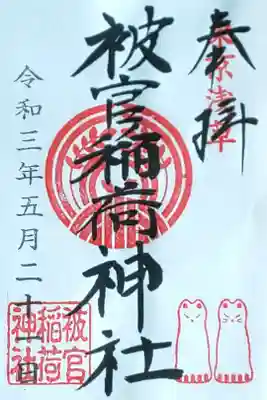 奉拝
東京浅草
被官稲荷神社
令和三年五月二十日
被官
稲荷
神社